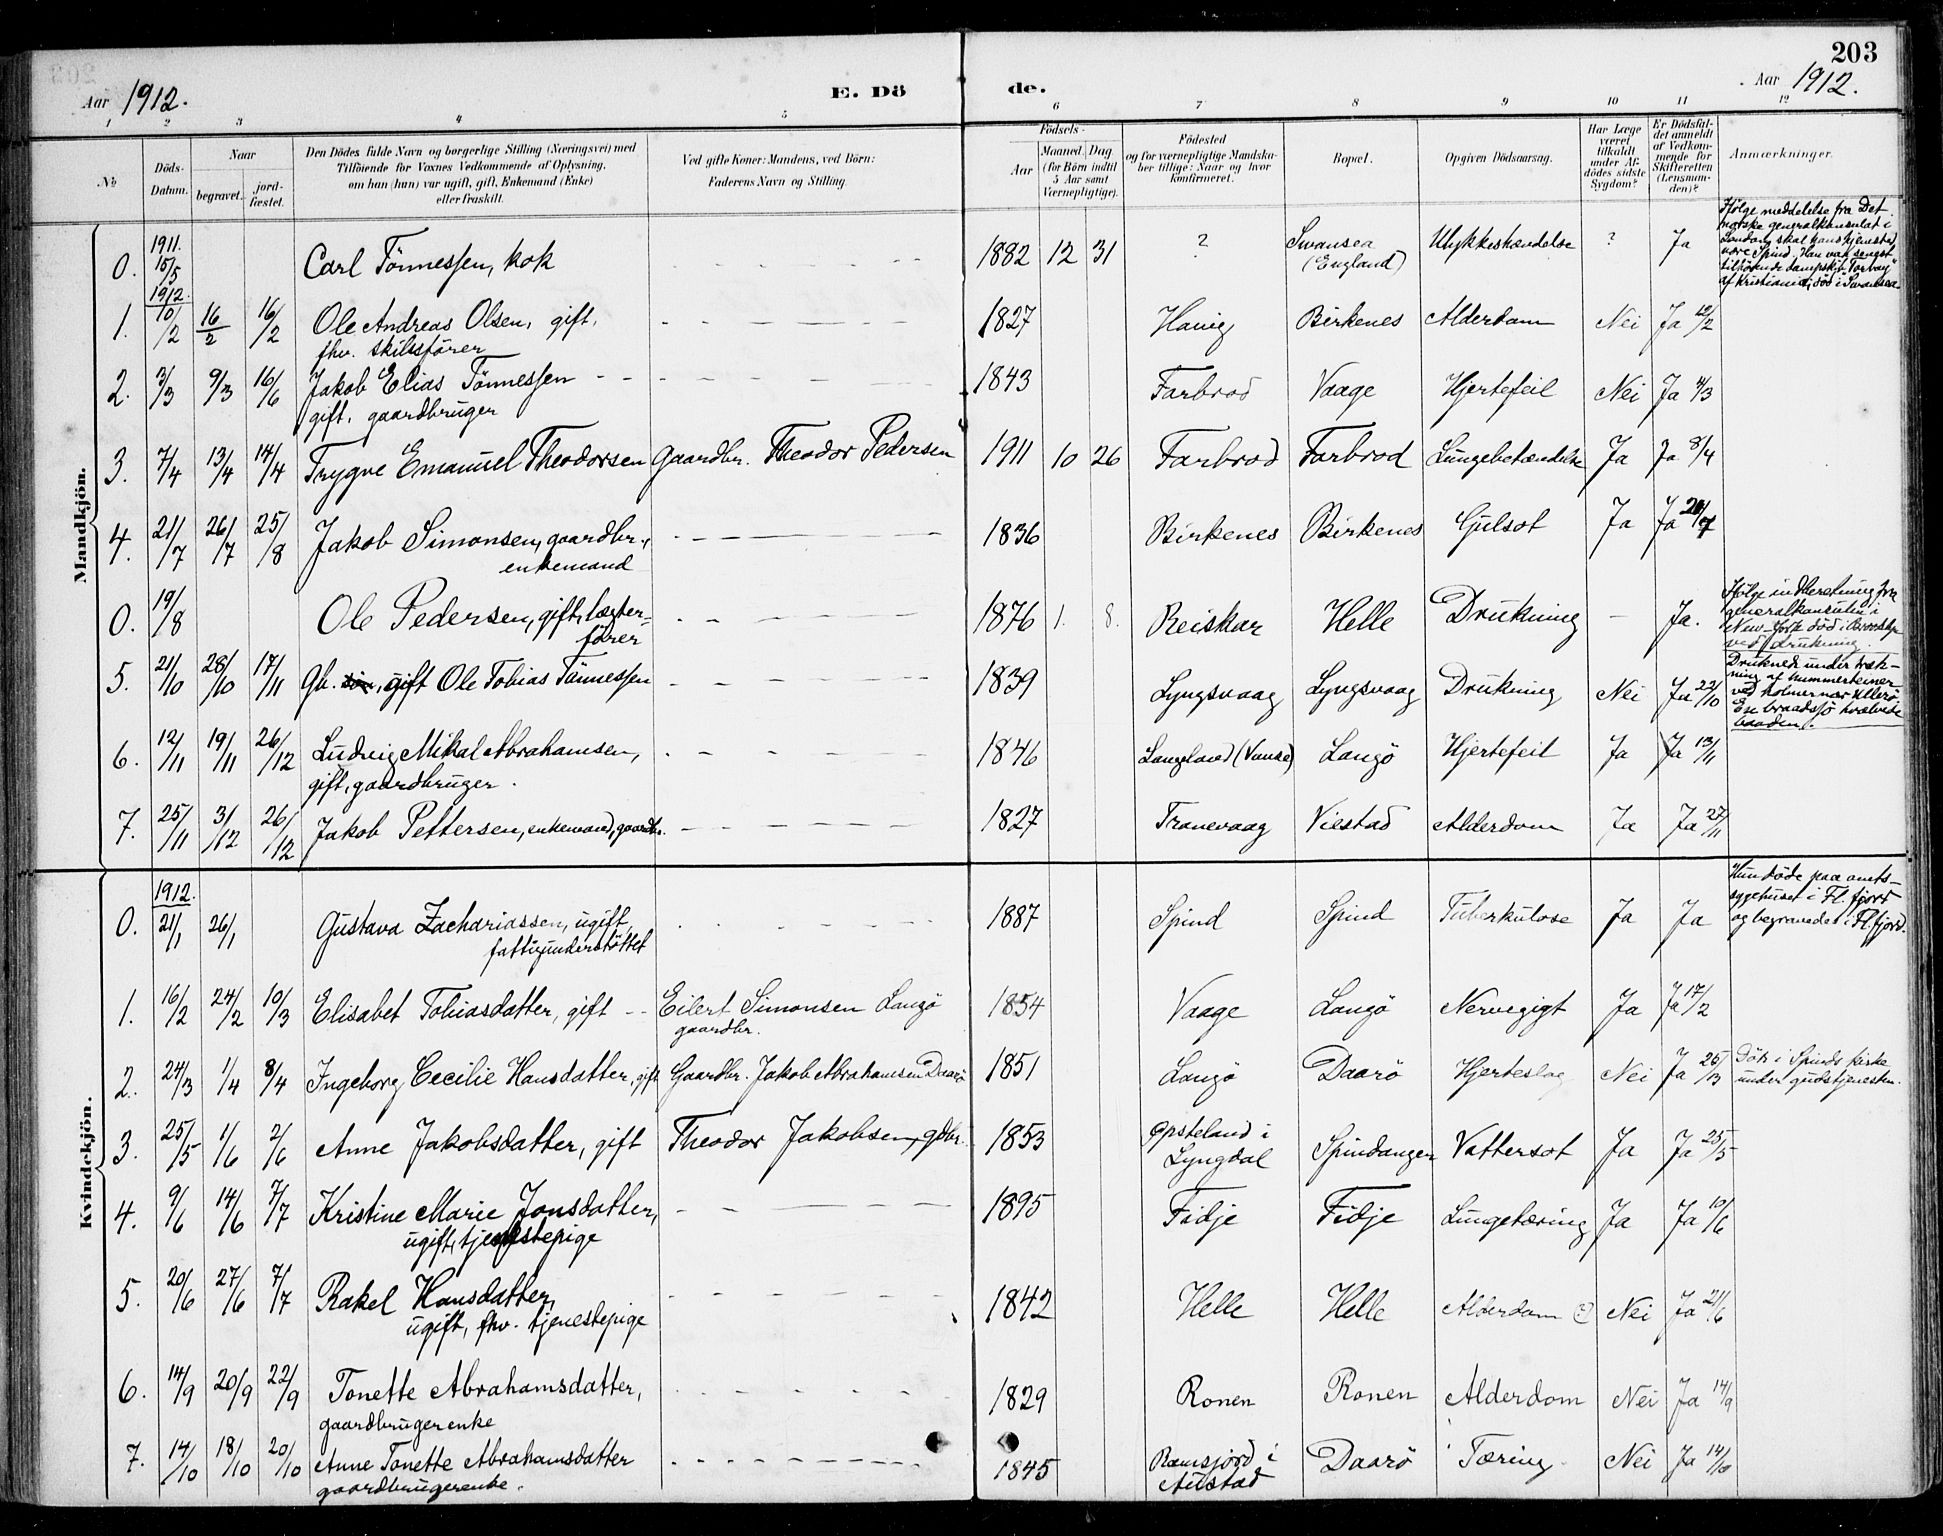 203
Aar 1912. E. Dö de. Aar 1912.
1 2 3 4 5 6 7 8 9 10 11 12
No
Döds-Datum.
Naar
begravet.
jord-fæstet.
Den Dödes fulde Navn og borgerlige Stilling (Næringsvei) med
Tilföiende for Voxnes Vedkommende af Oplysning,
om han (hun) var ugift, gift, Enkemand (Enke)
eller fraskilt.
Ved gifte Koner: Mandens, ved Börn:
Faderens Navn og Stilling.
Födsels-
Aar
Maaned. Dag
(for Börn indtil
5 Aar samt
Værnepligtige).
Födested
og for værnepligtige Mandska-
ber tillige: Naar og hvor
konfirmeret.
Bopæl.
Opgiven Dödsaarsag.
Har Læge
været
tilkaldt
under Af-
dödes sidste
Sygdom?
Er Dödsfal-
det anmeldt
af Vedkom-
mende for
Skifteretten
(Lensman-
den)?
Anmærkninger.
Mandkjön.
0. 1911. 15/5 Carl Tönnessen, kok 1882 12 31 ? Swansea (England) Ulykkeshændelse ? Ja
Ifølge meddelelse fra Det
norske generalkonsulat i
London skal hans hjemsted
være Spind. Han var
tilhörende dampsk. "Torbay"
af Kristiania, död i Swansea
1. 1912. 10/2 16/2 16/2 Ole Andreas Olsen, gift, 1827 Hanig Birkenes Alderdom Nei Ja 12/2
fhv. skibsförer
2. 3/3 9/3 16/6 Jakob Elias Tönnessen 1843 Farbrod Vaage Hjertefeil Nei Ja 4/3
gift, gaardbruger
3. 7/4 13/4 14/4 Trygve Emanuel Theodorsen Gaardbr. Theodor Pedersen 1911 10 26 Farbrod Farbrod Lungebetændelse Ja Ja 8/4
4. 21/7 26/7 25/8 Jakob Simonsen, gaardbr., 1836 Birkenes Birkenes Gulsot Ja Ja
enkemand
0. 19/8 Ole Pedersen, gift, lægter- 1876 1. 8. Reiskar Helle Drukning – Ja.
förer
Ifølge indberetning fra
generalkonsulen i
New-York död i Brooklyn
ved drukning.
5. 21/10 28/10 17/11 Gb. gift Ole Tobias Tönnessen 1839 Lyngsvaag Lyngsvaag Drukning Nei Ja 22/10
Druknede under træk-
ning af hummerteiner
ved holmer nær Ullerö
En braadsjö hvælvede
baaden.
6. 12/11 19/11 26/12 Ludvig Mikal Abrahamsen, 1846 Langeland (Vanse) Langö Hjertefeil Ja Ja 13/11
gift, gaardbruger.
7. 25/11 3/12 26/12 Jakob Pettersen, enkemand, gaardbr. 1827 Tranevaag Viestad Alderdom Ja Ja 27/11
Kvindekjön.
0. 1912. 21/1 26/1 Gustava Zachariassen, ugift, 1887 Spind Spind Tuberkulose Ja Ja
fattigunderstöttet
Hun döde paa amts-
sygehuset i Fl.fjord
og begravedes i Fl.fjord.
1. 16/2 24/2 10/3 Elisabet Tobiasdatter, gift Eilert Simonsen Langö 1854 Vaage Langö Nervegigt Ja Ja 17/2
gaardbr.
2. 24/3 1/4 8/4 Ingeborg Cecilie Hansdatter, gift Gaardbr. Jakob Abrahamsen Daarö 1851 Langö Daarö Hjerteslag Nei Ja 25/3
Döde i Spinds kirke
under gudstjenesten.
3. 25/5 1/6 2/6 Anne Jakobsdatter, gift Theodor Jakobsen, gdbr. 1853 Opsteland i Lyngdal Spindangen Vattersot Ja Ja 25/5
4. 9/6 14/6 7/7 Kristine Marie Jonsdatter, 1895 Fidje Fidje Lungetæring Ja Ja 10/6
ugift, tjenestepige
5. 20/6 27/6 7/7 Rakel Hansdatter, 1842 Helle Helle Alderdom (?) Nei Ja 21/6
ugift, fhv. tjenestepige
6. 14/9 20/9 22/9 Tonette Abrahamsdatter, 1829 Ronen Ronen Alderdom Nei Ja 14/9
gaardbrugerenke
7. 14/10 18/10 20/10 Anne Tonette Abrahamsdatter 1845 Ramsjord i Daarö Tæring Nei Ja 14/10
gaardbrugerenke.